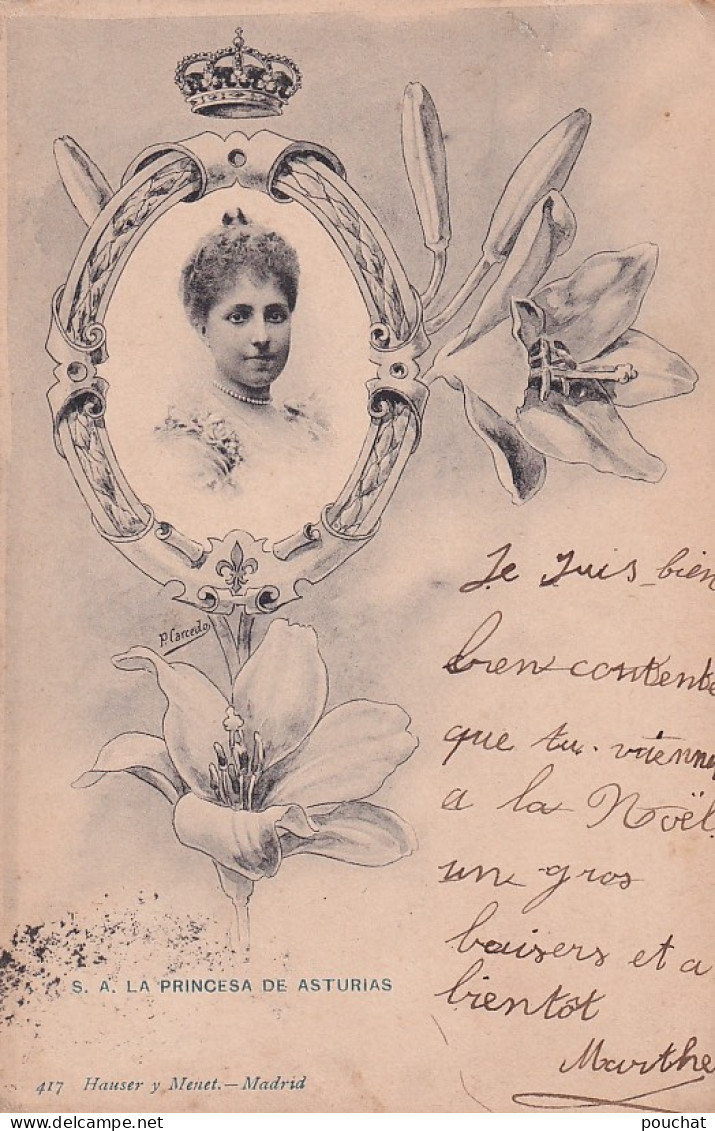 P. Carcedo
Je suis bien
bien contente
que tu viennes
a la Noël
un gros
baisers et a
bientôt
Marthe
S. A. LA PRINCESA DE ASTURIAS
417 Hauser y Menet.—Madrid
pouchat